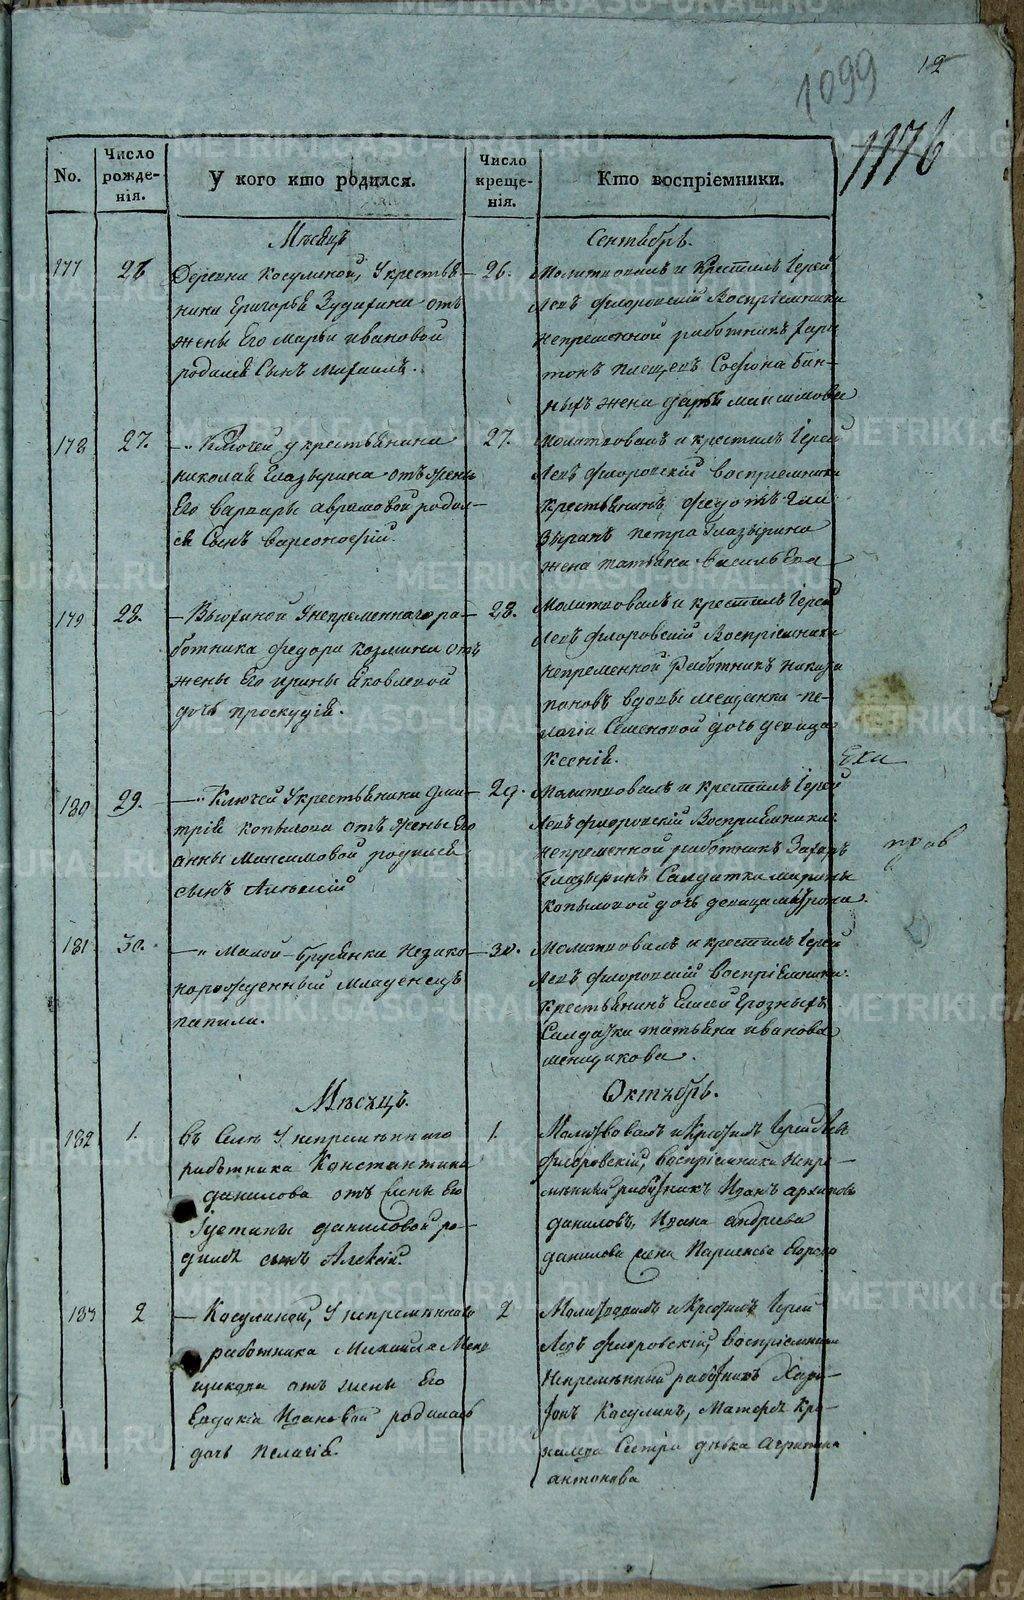 12
1099
1176
No.
Число рожде-нія.
У кого кто родился.
Число креще-нія.
Кто воспріемники.
Мѣсяцъ
Сентябрь.
177
26
Деревни Косулиной, У крестья-
нина Григорья Зудихина отъ
жены Его Марьи ивановой
родился Сынъ михаилъ.
26.
Молитвовалъ и Крестилъ Іерей
Левъ Флоровскій Воспріемники
непременной работникъ хари-
тонъ Софрона
жена дарья максимова
178
27.
Ключей у крестьянина
николая Глазырина отъ жены
Его варвары аврамовой родил-
ся Сынъ варсонофій.
27.
Молитвовалъ и крестилъ Іерей
Левъ Флоровскій воспріемники
крестьянинъ Федотъ Гла
зыринъ петра Глазырина
жена татьяна васильева
179
28.
Унепременнаго ра-
ботника федора козмина отъ
жены Его ирины Яковлевой
дочь проскудія.
28.
Молитвовалъ и крестилъ Іерей
Левъ Флоровскій Воспріемники
непременной Работникъ
поповъ вдовы мещанки пе-
лагіи Семеновой дочь девица
Ксенія.
180
29.
Ключей Укрестьянина дми-
трія копылова отъ жены Его
анны Максимовой родился
сынъ
29.
Молитвовалъ и крестилъ Іерей
Левъ флоровскій Воспріемники
непременной работникъ Захаръ
Глазыринъ Салдатки марины
копыловой дочь девица матрона.
181
30.
Малой брусянки Незако-
норожденный младенецъ
30.
Молитвовалъ и крестилъ Іерей
Левъ флоровскій воспріемники
Крестьянинъ Елисей Грозныхъ
Салдатка татьяна иванова
менщикова.
Мѣсяцъ.
Октябрь.
182
1.
Въ Селѣ У непремѣннаго
работника Константина
данилова отъ жены Его
Іустины даниловой ро-
дился сынъ Алексій.
1.
Молитвовалъ и Крестилъ Іерей Левъ
Флоровскій, воспріемники Непре-
мѣнный работникъ Иванъ архиповъ
даниловъ, Ивана андреева
данилова жена Парасковья Егорова
183
2
Косулиной, У непремѣннаго
работника Михаила Мен-
щикова отъ жены Его
Евдокіи Ивановой родилась
дочь Пелагія.
2
Молитвовалъ и Крестилъ Іерей
Левъ Флоровскій, воспріемники
Непремѣнный работникъ Хари-
тонъ Косулинъ,
Сестра дѣвка Агрипина
антонова
METRIKI.GASO-URAL.RU